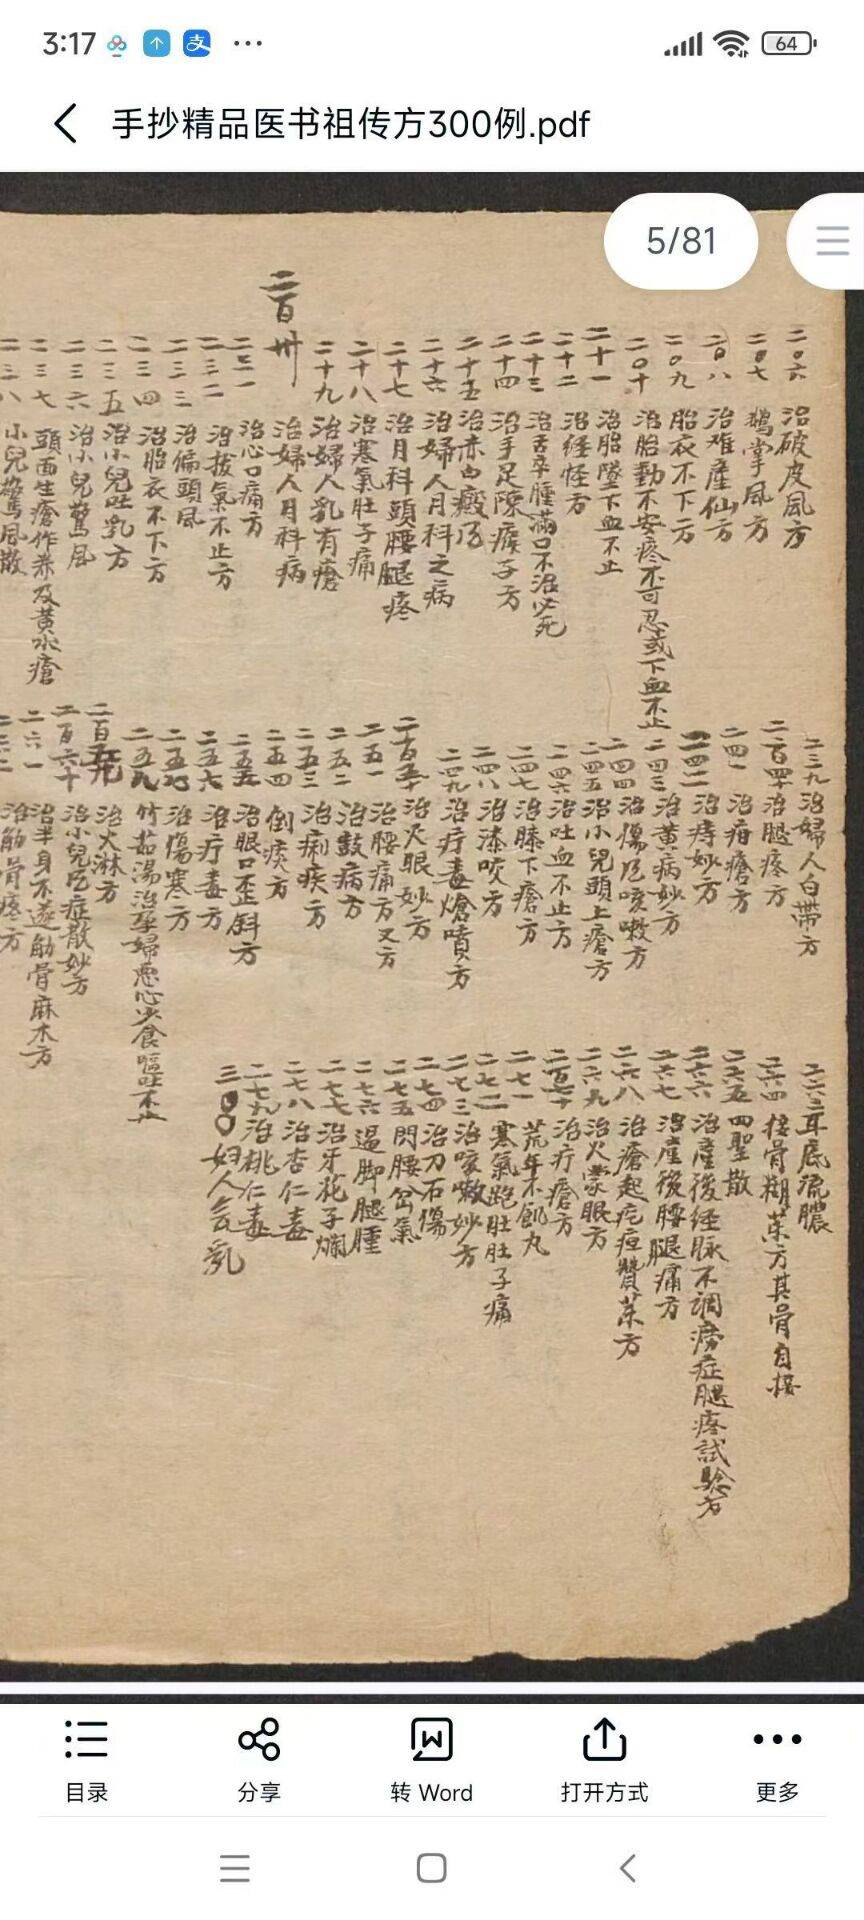 3:17
64
手抄精品医书祖传方300例.pdf
5/81
二〇六 治破皮風方
二〇七 鵝掌風方
二〇八 治难產仙方
二〇九 胎衣不下方
二〇十 治胎動不安疼不可忍或下血不止
二十一 治胎墜下血不止
二十二 治经怪方
二十三 治舌卒腫滿口不治必死
二十四 治手足隙瘊子方
二十五 治赤白癜
二十六 治婦人月科之病
二十七 治月科頭腰腿疼
二十八 治寒氣肚子痛
二十九 治婦人乳有瘡
二百卅 治婦人月科病
二三一 治心口痛方
二三二 治拔氣不止方
二三三 治偏頭風
二三四 治胎衣不下方
二三五 治小兒吐乳方
二三六 治小兒驚風
二三七 頭面生瘡作养及黄水瘡
二三八 小兒驚風散
二三九 治婦人白帶方
二百四十 治腿疼方
二四一 治疳瘡方
二四二 治痔妙方
二四三 治黄病妙方
二四四 治傷风咳嗽方
二四五 治小兒頭上瘡方
二四六 治吐血不止方
二四七 治膝下瘡方
二四八 治漆咬方
二四九 治疔毒熗噴方
二百五十 治火眼妙方
二五一 治腰痛方又方
二五二 治鼓病方
二五三 治痢疾方
二五四 倒痰方
二五五 治眼口歪斜方
二五六 治疔毒方
二五七 治傷寒方
二五八 竹茹湯治孕婦惡心少食嘔吐不止
二百五九 治火淋方
二百六十 治小兒风症散妙方
二六一 治半身不遂筋骨麻木方
二六二 治筋骨疼方
二六三 耳底流膿
二六四 接骨糊药方其骨自接
二六五 四聖散
二六六 治產後经脉不調癆症腿疼試驗方
二六七 治產後腰腿痛方
二六八 治瘡起疙疸贊药方
二六九 治火蒙眼方
二百七十 治疔瘡方
二七一 荒年不飢丸
二七二 寒氣跑肚肚子痛
二七三 治咳嗽妙方
二七四 治刀石傷
二七五 閃腰岔氣
二七六 逿脚腿腫
二七七 治牙花子爛
二七八 治杏仁毒
二七九 治桃仁毒
三〇〇 妇人会乳
目录
分享
转 Word
打开方式
更多